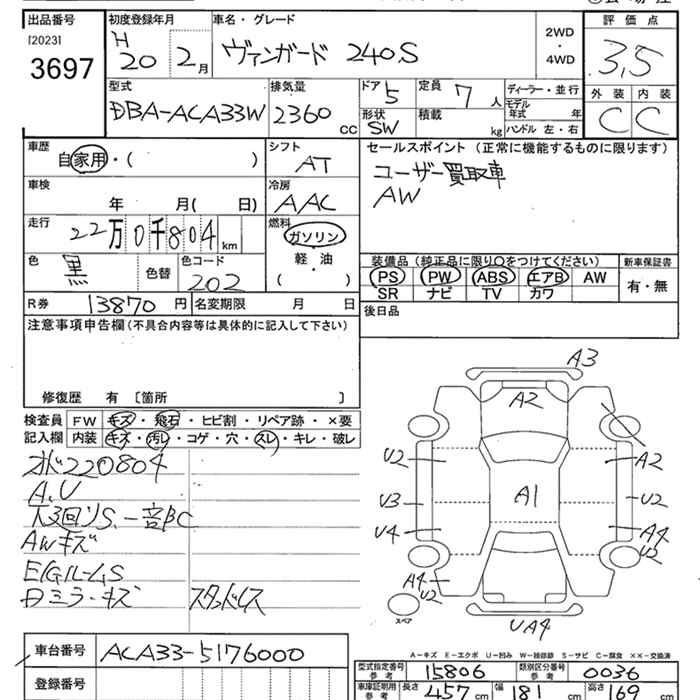 出品番号 初度登録年月 車名・グレード 評価点
[2023]
3697
H 20 2月 ヴァンガード 240S
2WD
・
4WD
3,5
型式 排気量 ドア 定員 ディーラー・並行 外装 内装
DBA-ACA33W 2360 cc 5 7人
モデル年式 年
形状 SW 積載 kg ハンドル 左・右
C C
車歴 シフト セールスポイント (正常に機能するものに限ります)
自家用・( ) AT ユーザー買取車
AW
車検 冷房
年 月( 日) AAC
走行 燃料
22万0千804km ガソリン
軽・油
( )
色 黒 色替 色コード 202
装備品(純正品に限り○をつけてください) 新車保証書
PS PW ABS エアB AW 有・無
SR ナビ TV カワ
R券 13870円 名変期限 月 日 後日品
注意事項申告欄(不具合内容等は具体的に記入して下さい)
修復歴 有 〔箇所 〕
検査員 FW キズ・飛石・ヒビ割・リペア跡・×要
記入欄 内装 キズ・汚レ・コゲ・穴・スレ・キレ・破レ
220804
A,U
AWキズ
ミラーキズ スタッドレス
A3
A2
U2 A2
A1
U3 U2
U4 A4
U2
A4
U2
スペア
UA4
車台番号 ACA33-5176000
登録番号
A-キズ E-エクボ U-凹み W-補修跡 S-サビ C-腐食 ××-交換済
型式指定番号 参考 15806 類別区分番号 参考 0036
車庫証明用 参考 長さ 457cm 幅 181cm 高さ 169cm